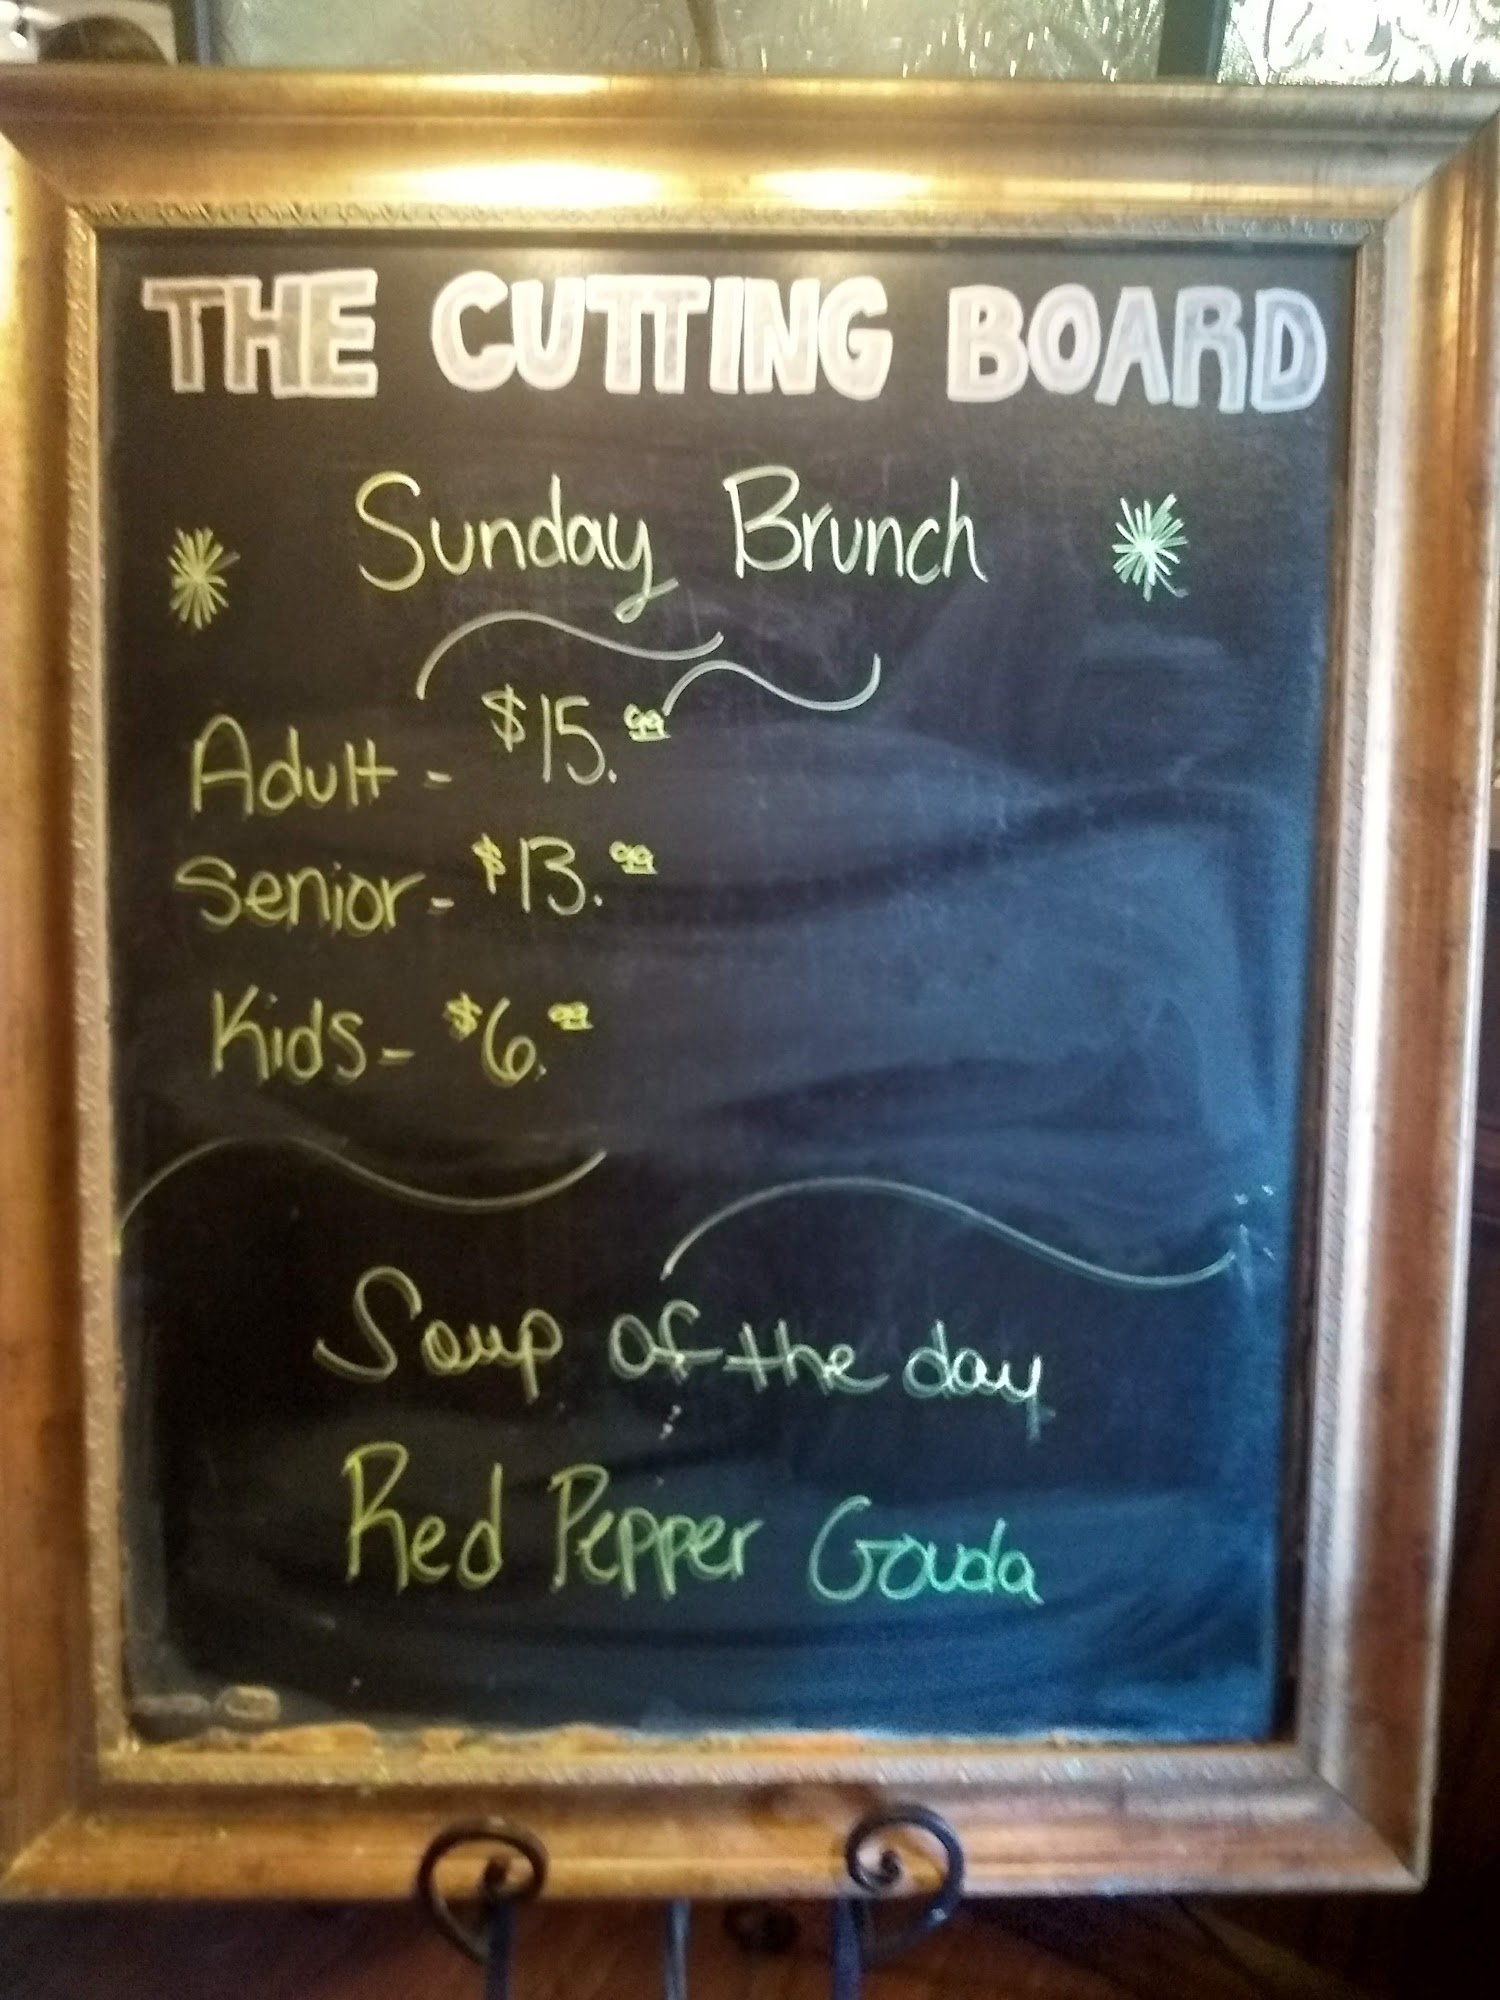 THE CUTTING BOARD
Sunday Brunch
Adult - $15.99
Senior - $13.99
Kids - $6.99
Soup of the day
Red Pepper Gouda